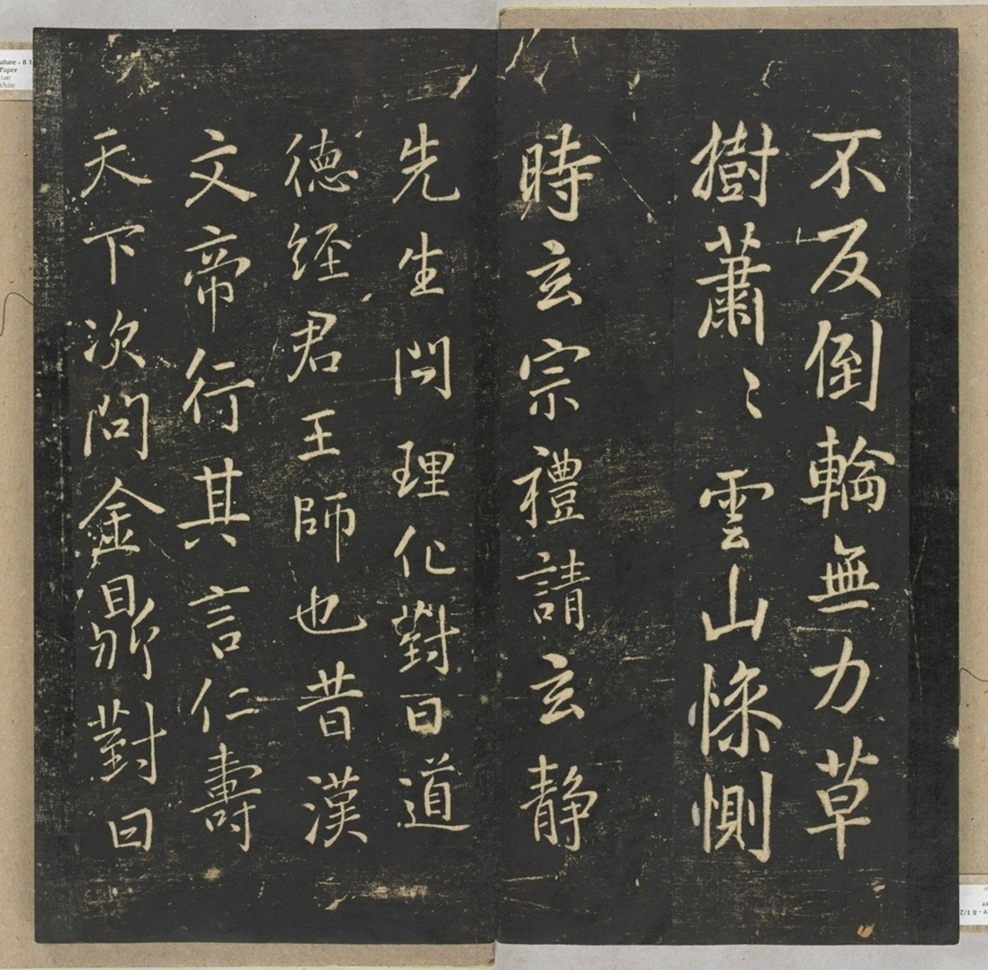 不反倒輪無力草
樹蕭〻雲山慘惻
時玄宗禮請玄静
先生問理化對曰道
德經君王師也昔漢
文帝行其言仁壽
天下次問金鼎對曰
ature - 8 1
Paper
lue
White